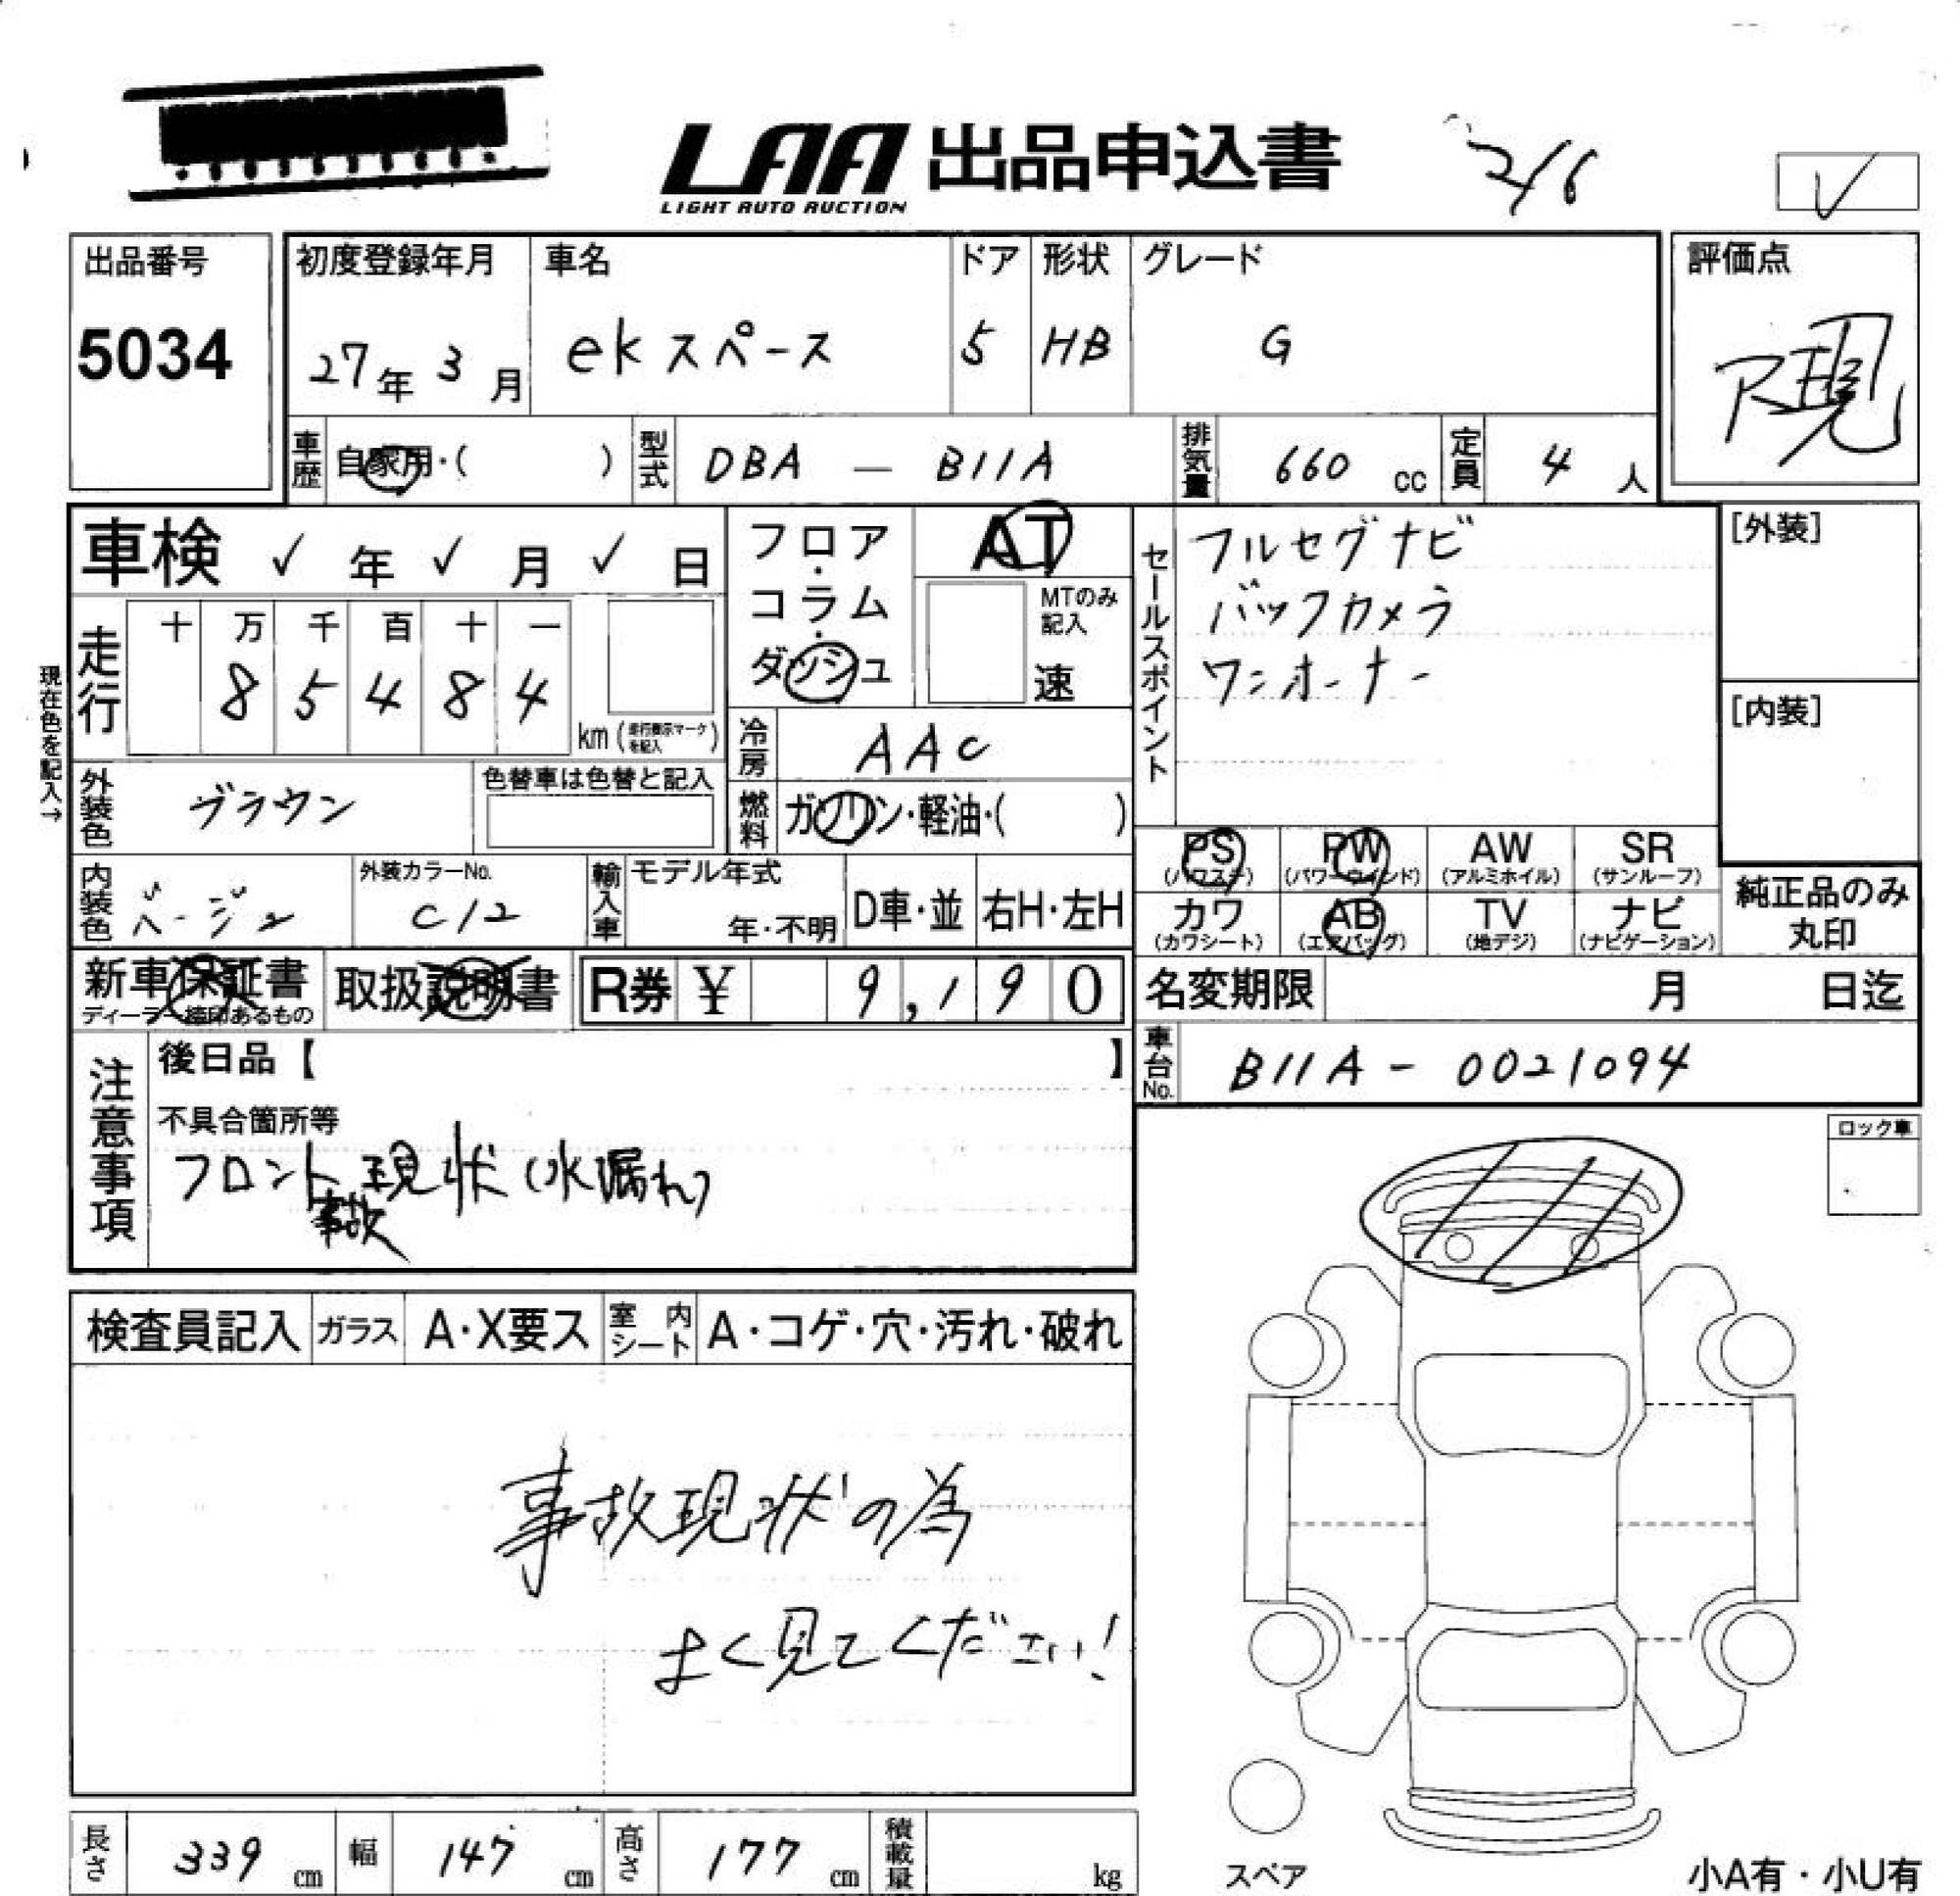 LAA 出品申込書
LIGHT AUTO AUCTION
2/6
✓
出品番号
5034
初度登録年月
27年 3月
車名
ekスペース
ドア
5
形状
HB
グレード
G
評価点
R現
車歴
自家用・( )
型式
DBA — B11A
排気量
660 cc
定員
4 人
車検 ✓ 年 ✓ 月 ✓ 日
走行
十 万 千 百 十 一
8 5 4 8 4
km (走行表示マークを記入)
現在色を記入→
外装色
ブラウン
色替車は色替と記入
内装色
ベージュ
外装カラーNo.
C12
輸入車
モデル年式
年・不明
D車・並
右H・左H
フロア・コラム・ダッシュ
AT
MTのみ記入
速
冷房
AAC
燃料
ガソリン・軽油・( )
セールスポイント
フルセグナビ
バックカメラ
ワンオーナー
[外装]
[内装]
PS (パワステ)
PW (パワーウインド)
AW (アルミホイル)
SR (サンルーフ)
カワ (カワシート)
AB (エアバッグ)
TV (地デジ)
ナビ (ナビゲーション)
純正品のみ丸印
新車保証書
ディーラー捺印あるもの
取扱説明書
R券 ¥ 9,190
名変期限 月 日迄
車台No.
B11A - 0021094
注意事項
後日品【 】
不具合箇所等
フロント事故現状(水漏れ)
ロック車
検査員記入
ガラス A・X要ス
室内シート A・コゲ・穴・汚れ・破れ
事故現状の為
よく見てください!
長さ 339 cm
幅 147 cm
高さ 177 cm
積載量 kg
スペア
小A有・小U有